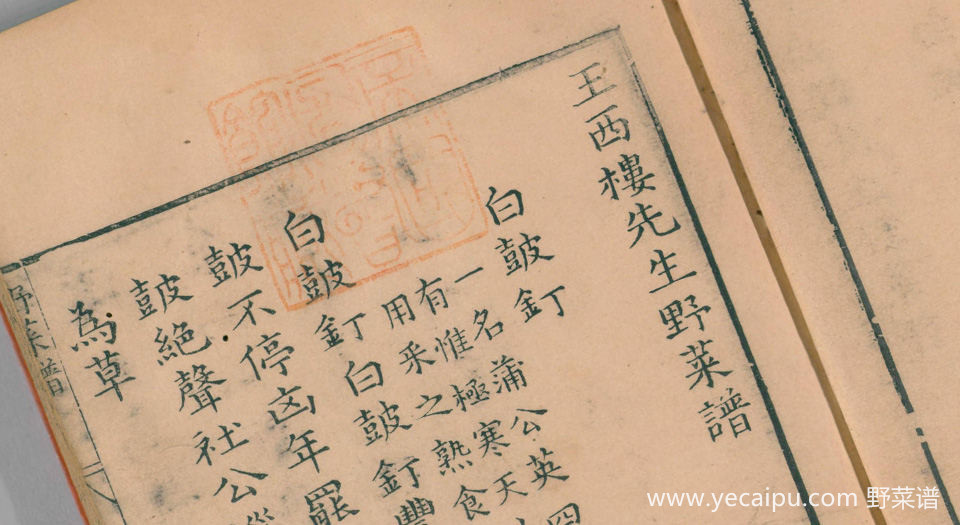 王西樓先生野菜譜
白鼓釘
一名蒲公英四
有惟極寒天
用采之熟食
白鼓釘白鼓釘豐
鼓不停凶年罷
鼓絕聲社公
為草
野菜譜
www.yecaipu.com 野菜谱